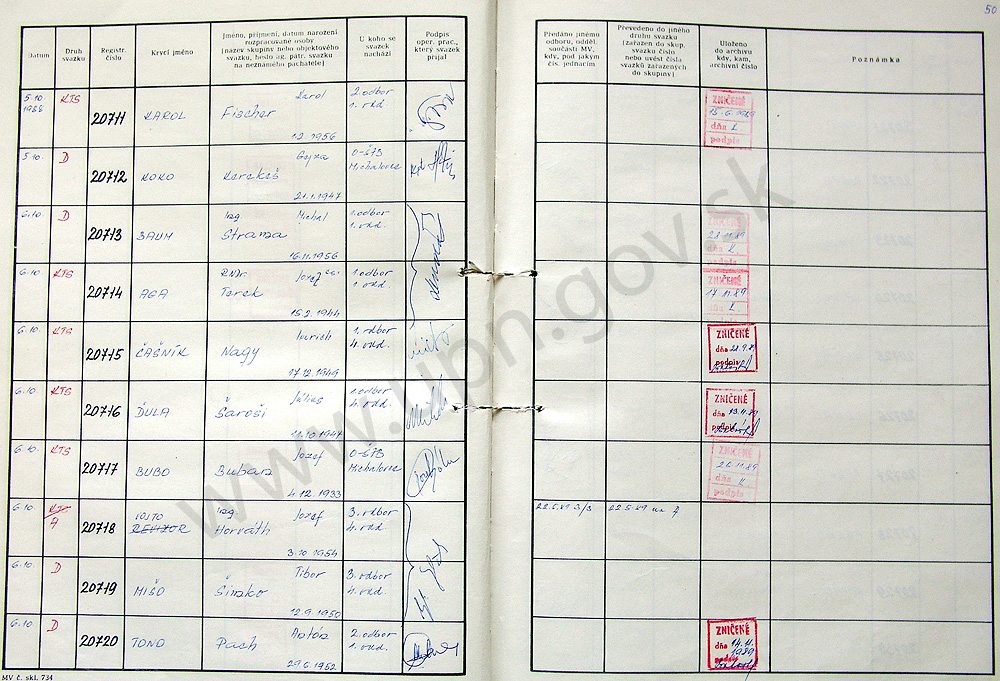 50
Datum
Druh svazku
Registr. číslo
Krycí jméno
Jméno, příjmení, datum narození
rozpracované osoby
[název skupiny nebo objektového
svazku, heslo ag. pátr. svazku
na neznámého pachatele]
U koho se
svazek
nachází
Podpis
oper. prac.,
který svazek
přijal
Předáno jinému
odboru, odděl.
součásti MV,
kdy, pod jakým
čís. jednacím
Převedeno do jiného
druhu svazku
[zařazen do skup.
svazku číslo
nebo uvést čísla
svazků zařazených
do skupiny]
Uloženo
do archivu
kdy, kam,
archivní číslo
Poznámka
5.10. 1988 KTS 20711 KAROL Fischer Karol 1.2.1956 2.odbor 1.odd
ZNIČENÉ
15.6.1989
dňa
podpis
5.10. D 20712 KOKO Kerekeš Gejza 21.1.1947 O-ŠTB Michalovce
6.10 D 20713 BAUM Ing Strama Michal 16.11.1956 1.odbor 1.odd.
ZNIČENÉ
28.11.89
dňa
podpis
6.10 KTS 20714 AGA RNDr Torek Jozef 15.2.1944 1.odbor 1.odd.
ZNIČENÉ
17.11.89
dňa
podpis
6.10. KTS 20715 ČAŠNÍK Nagy 17.12.1949 1.odbor 4.odd.
ZNIČENÉ
dňa 28.9.89
podpis
6.10 KTS 20716 ĎULA Šaroši Július 11.10.1947 1.odbor 4.odd.
ZNIČENÉ
dňa 13.11.89
podpis
6.10 KTS 20717 BUBO Buban Jozef 4.12.1933 O-ŠTB Michalovce
ZNIČENÉ
26.11.89
dňa
podpis
6.10 KTS A 20718 VOJTO REVIZOR Ing Horváth Jozef 3.10.1954 3.odbor 4.odd. 22.5.89
6.10. D 20719 MIŠO Širako Tibor 12.9.1950 3.odbor 4.odd.
6.10 D 20720 TONO Pach Anton 29.6.1952 2.odbor 1.odd.
ZNIČENÉ
dňa 14.11. 1989
MV č. skl. 734
www.upn.gov.sk